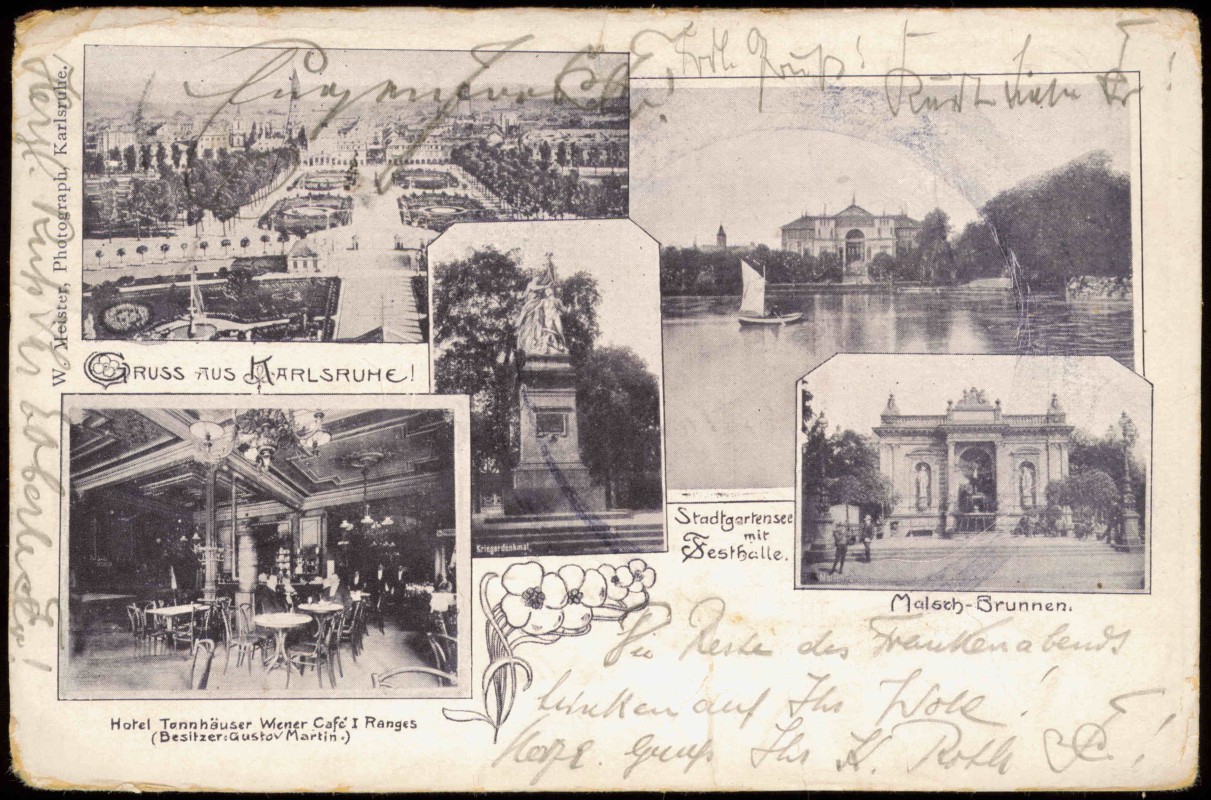 Frdl. Gruß!
W. Meister, Photograph, Karlsruhe.
GRUSS AUS KARLSRUHE!
Kriegerdenkmal
Stadtgartensee
mit
Festhalle.
Malsch-Brunnen.
Hotel Tannhäuser Wiener Café I Ranges
(Besitzer: Gustav Martin.)
Die Reste des Frankenabends
trinken auf Ihr Wohl!
Herzl. Gruß Ihr K. Roth